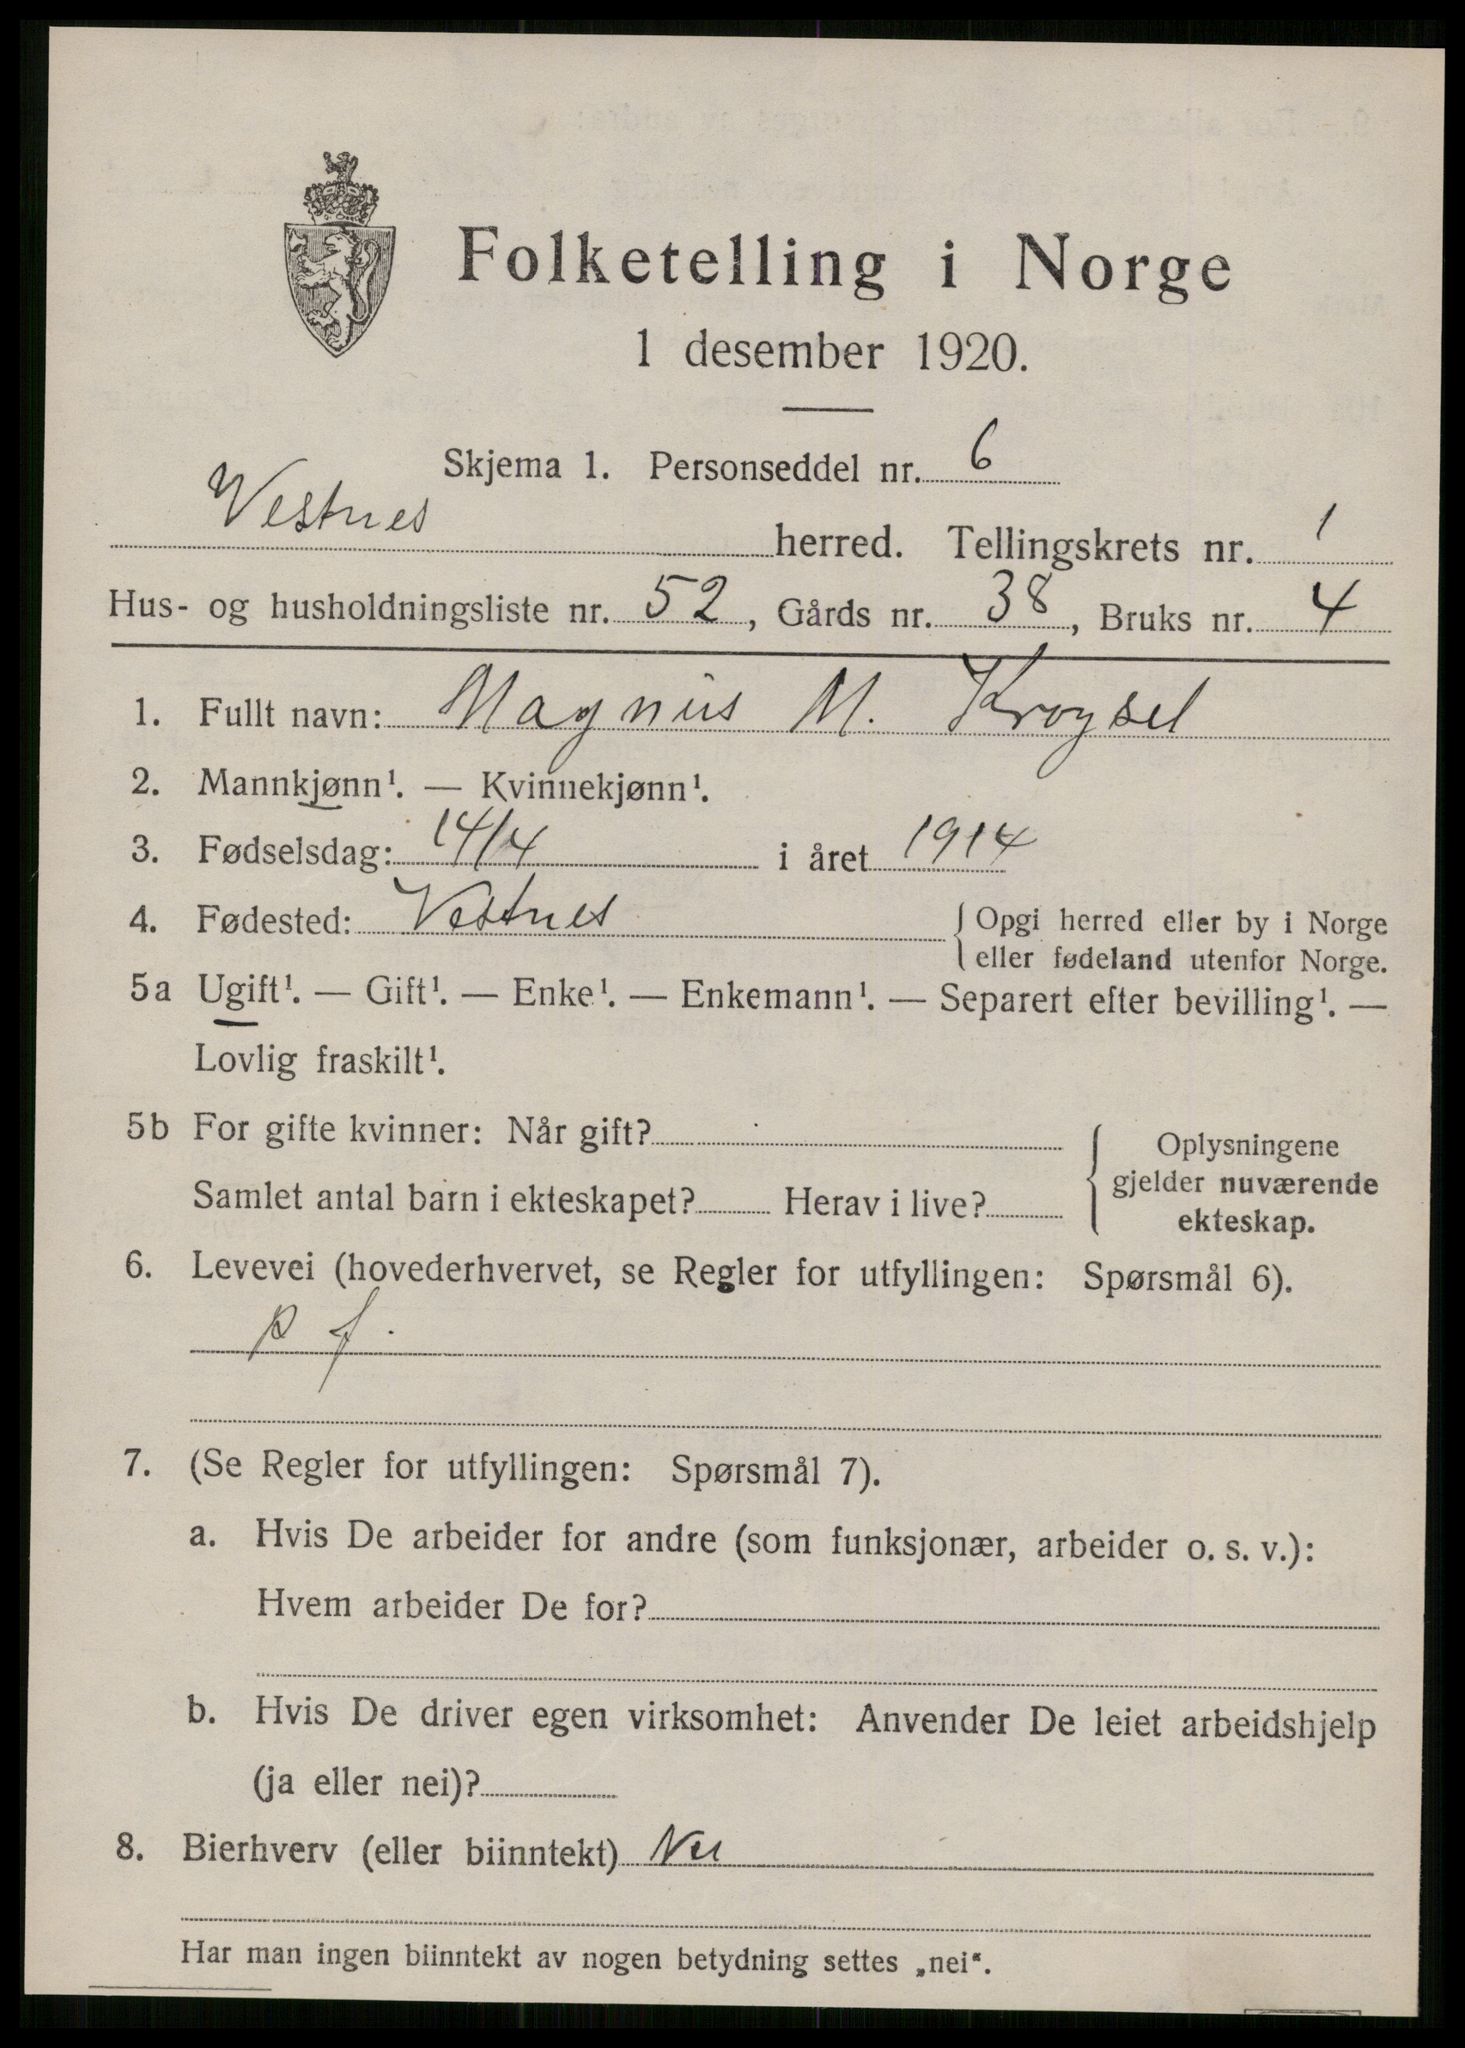 Folketelling i Norge
1 desember 1920.
Skjema 1. Personseddel nr. 6
Vestnes herred. Tellingskrets nr. 1
Hus- og husholdningsliste nr. 52, Gårds nr. 38, Bruks nr. 4
1. Fullt navn: Magnus M. Kroysel
2. Mannkjønn¹. — Kvinnekjønn¹.
3. Fødselsdag: 14/4 i året 1914
4. Fødested: Vestnes { Opgi herred eller by i Norge
eller fødeland utenfor Norge.
5a Ugift¹. — Gift¹. — Enke¹. — Enkemann¹. — Separert efter bevilling¹. —
Lovlig fraskilt¹.
5b For gifte kvinner: Når gift?
Samlet antal barn i ekteskapet? Herav i live?
Oplysningene
gjelder nuværende
ekteskap.
6. Levevei (hovederhvervet, se Regler for utfyllingen: Spørsmål 6).
p f.
7. (Se Regler for utfyllingen: Spørsmål 7).
a. Hvis De arbeider for andre (som funksjonær, arbeider o. s. v.):
Hvem arbeider De for?
b. Hvis De driver egen virksomhet: Anvender De leiet arbeidshjelp
(ja eller nei)?
8. Bierhverv (eller biinntekt) Nei
Har man ingen biinntekt av nogen betydning settes „nei“.